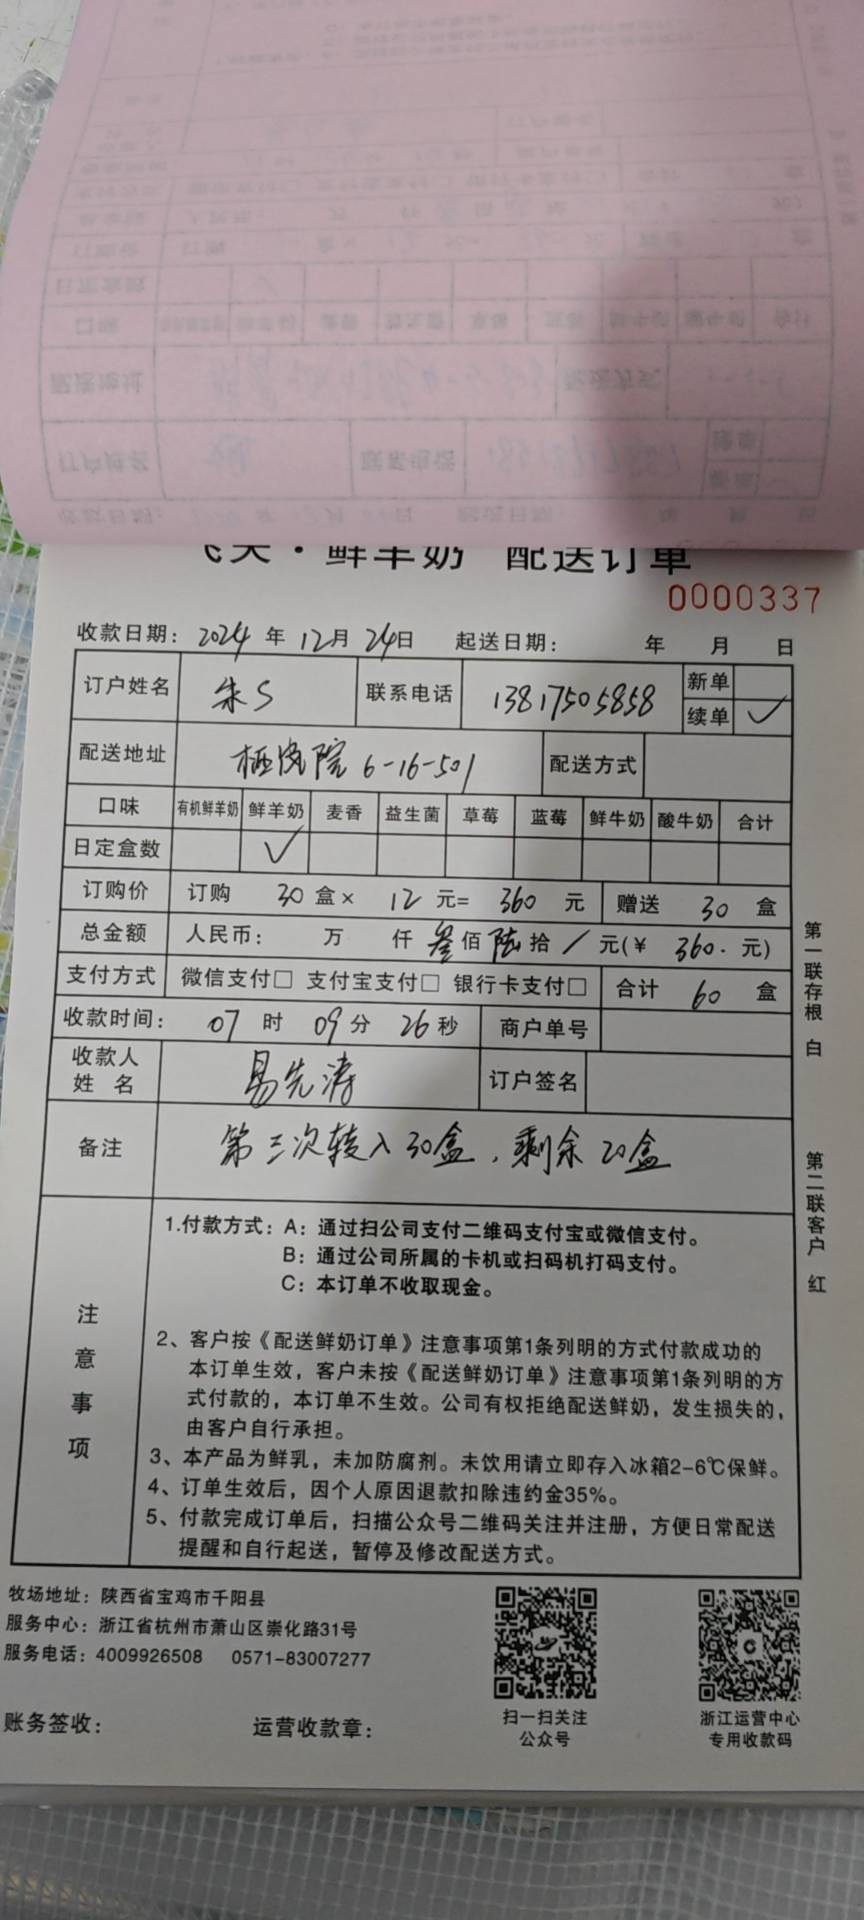 飞天·鲜羊奶 配送订单
0000337
收款日期: 2024 年 12月 24日 起送日期: 年 月 日
订户姓名 朱S 联系电话 13817505858 新单
续单 ✓
配送地址 6-16-501 配送方式
口味 有机鲜羊奶 鲜羊奶 麦香 益生菌 草莓 蓝莓 鲜牛奶 酸牛奶 合计
日定盒数 ✓
订购价 订购 30 盒× 12 元= 360 元 赠送 30 盒
总金额 人民币: 万 仟 叁佰 陆拾 / 元(¥ 360. 元)
支付方式 微信支付□ 支付宝支付□ 银行卡支付□ 合计 60 盒
收款时间: 07 时 09分 26秒 商户单号
收款人
姓 名 易先涛 订户签名
备注 第三次转入30盒,剩余20盒
第一联存根 白
第二联客户 红
注意事项
1.付款方式:A:通过扫公司支付二维码支付宝或微信支付。
B:通过公司所属的卡机或扫码机打码支付。
C:本订单不收取现金。
2、客户按《配送鲜奶订单》注意事项第1条列明的方式付款成功的
本订单生效,客户未按《配送鲜奶订单》注意事项第1条列明的方
式付款的,本订单不生效。公司有权拒绝配送鲜奶,发生损失的,
由客户自行承担。
3、本产品为鲜乳,未加防腐剂。未饮用请立即存入冰箱2-6℃保鲜。
4、订单生效后,因个人原因退款扣除违约金35%。
5、付款完成订单后,扫描公众号二维码关注并注册,方便日常配送
提醒和自行起送,暂停及修改配送方式。
牧场地址:陕西省宝鸡市千阳县
服务中心:浙江省杭州市萧山区崇化路31号
服务电话:4009926508 0571-83007277
扫一扫关注
公众号
浙江运营中心
专用收款码
账务签收: 运营收款章: